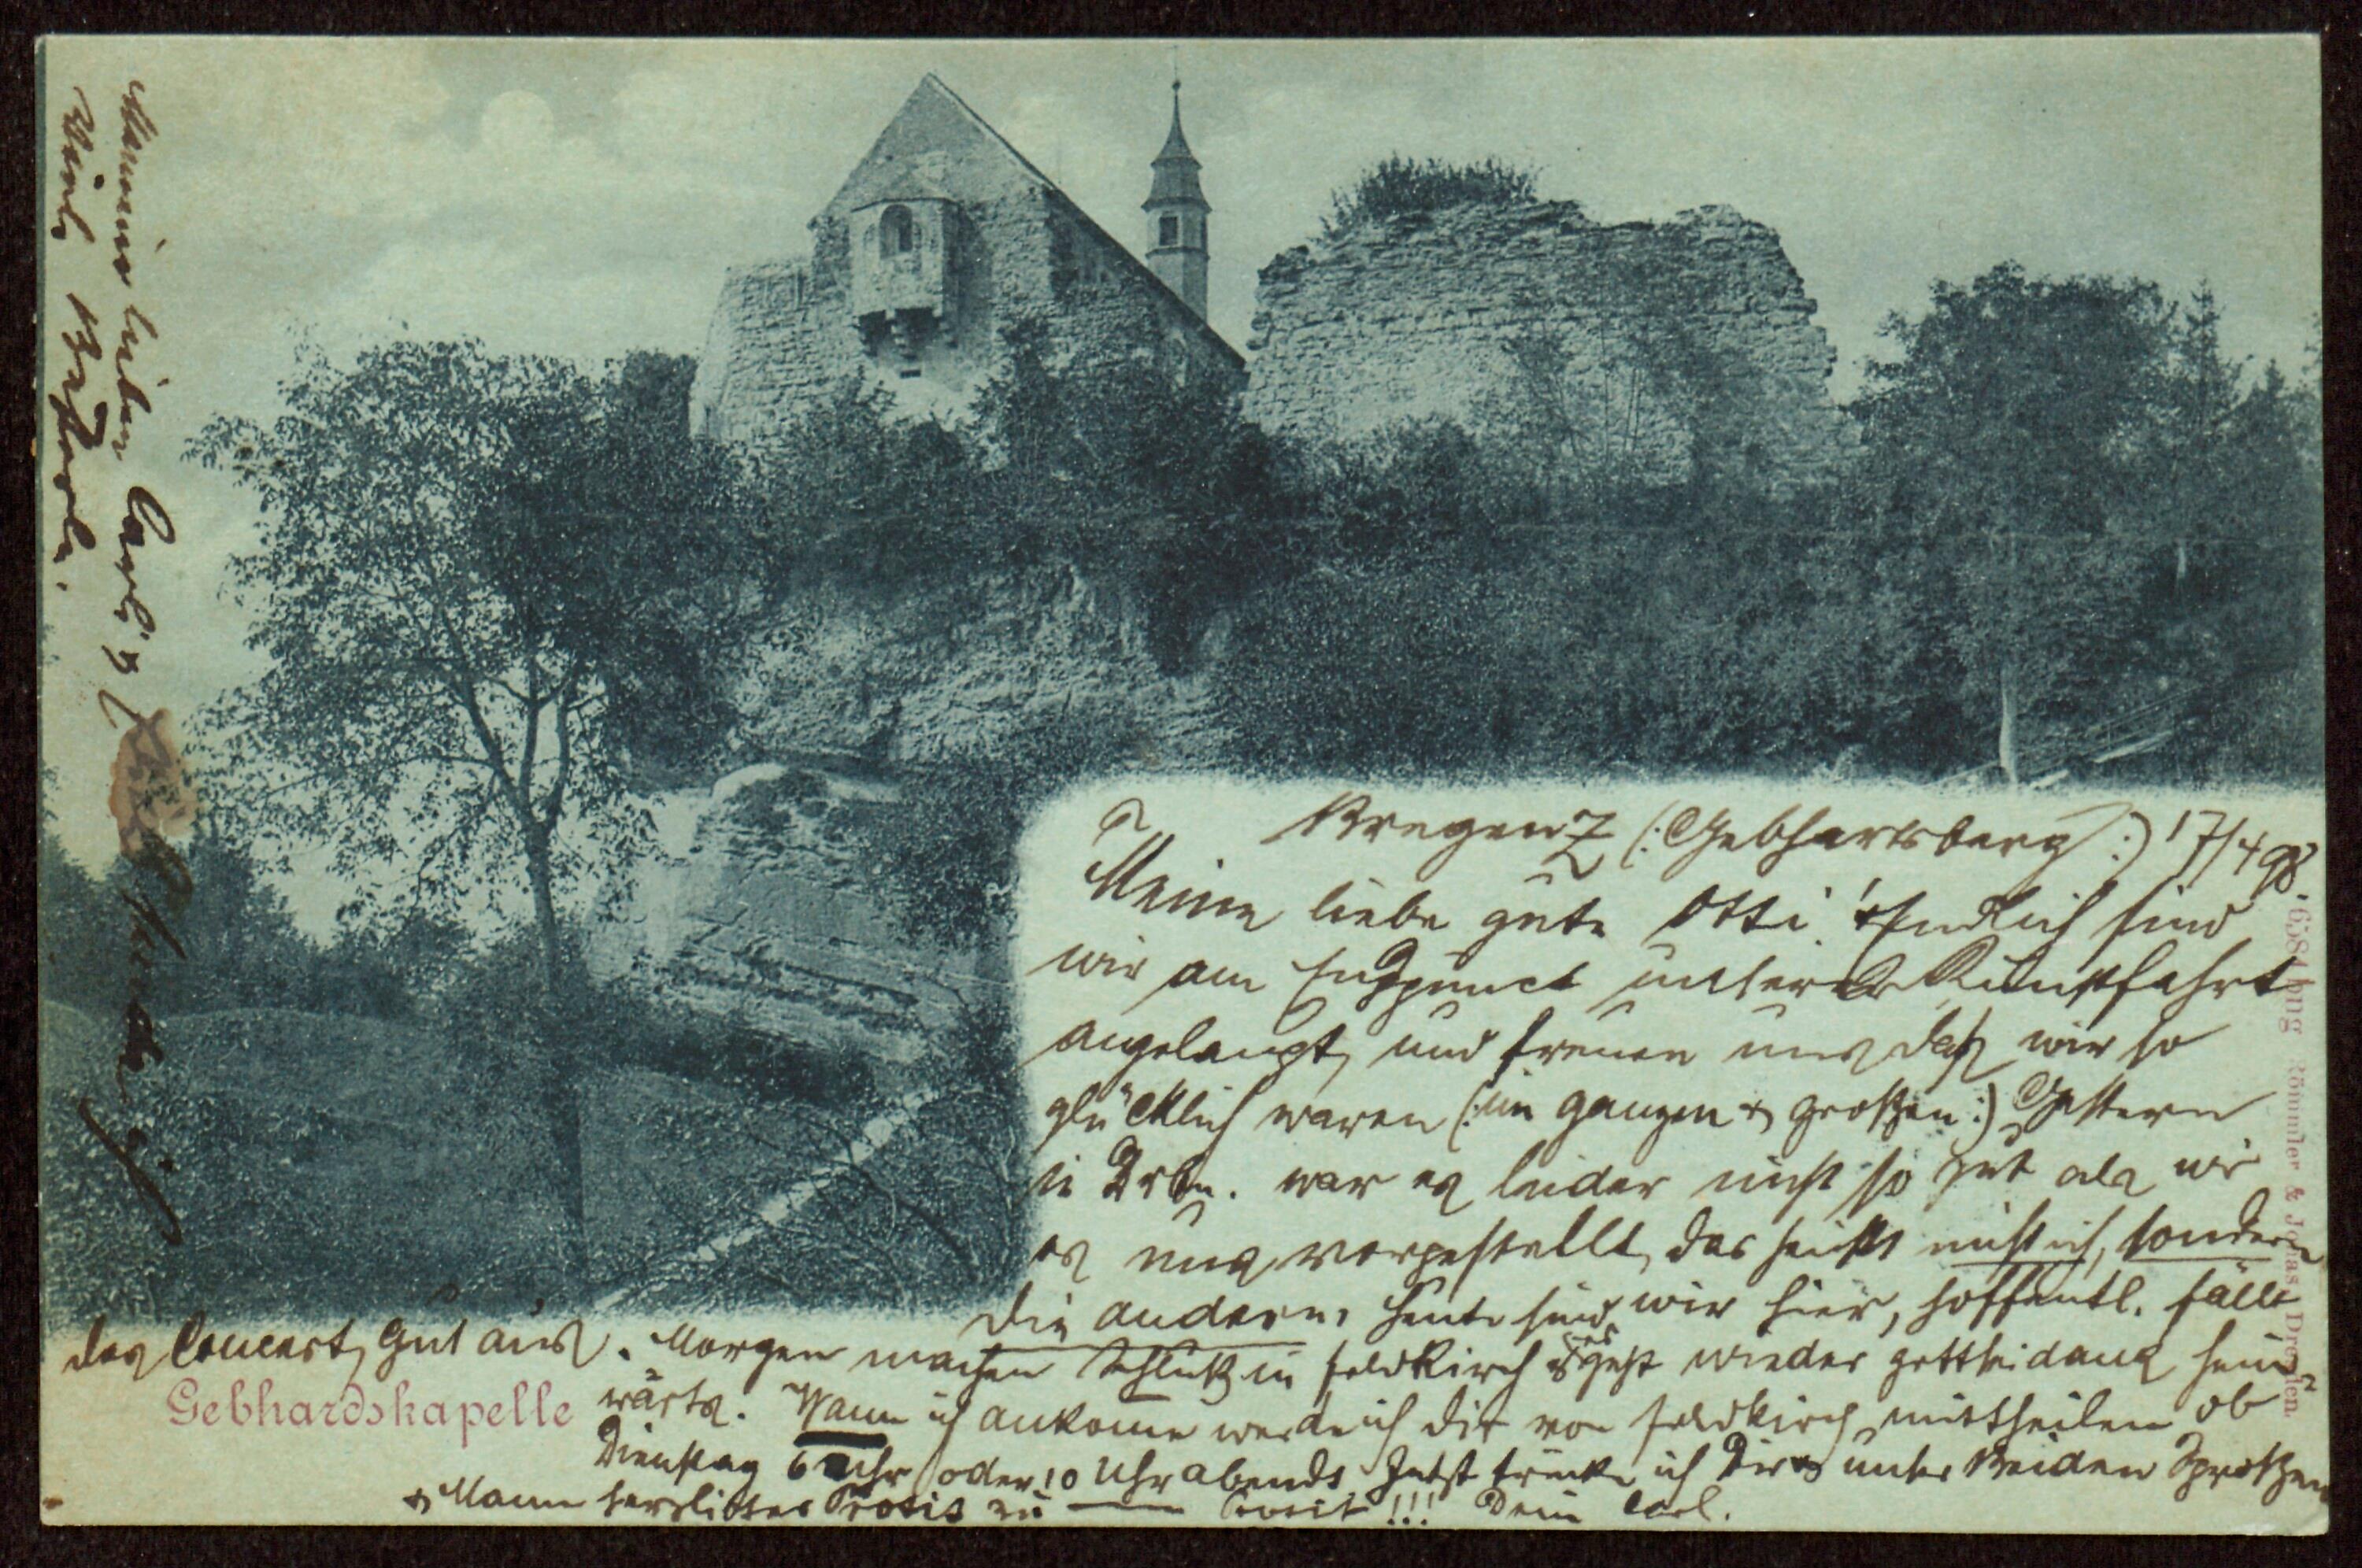 Bregenz (: Gebhartsberg :) 17/4 98.
Meine liebe gute Otti! Endlich sind
wir am Endpunct unserer Kunstfahrt
angelangt, und freuen uns daß wir so
glücklich waren (: im ganzen & großen :) Gestern
in Drbn. war es leider nicht so gut als wir
es uns vorgestellt, das heißt nicht ich, sondern
die andern, heute sind wir hier, hoffentl. fällt
das Concert gut aus. Morgen machen Schluß in Feldkirch & geht wieder gottseidank heim
wärts. Wann ich ankomme werde ich dir von Feldkirch mittheilen ob
Dienstag 6 Uhr oder 10 Uhr abends. Jetzt trinke ich Dir & unsre Beiden Sproßen
& Mama herzlichstes Prosit zu — Prosit!!! Dein Carl.
Gebhardskapelle
Meinem lieben Carl
Römmler & Jonas, Dresden.